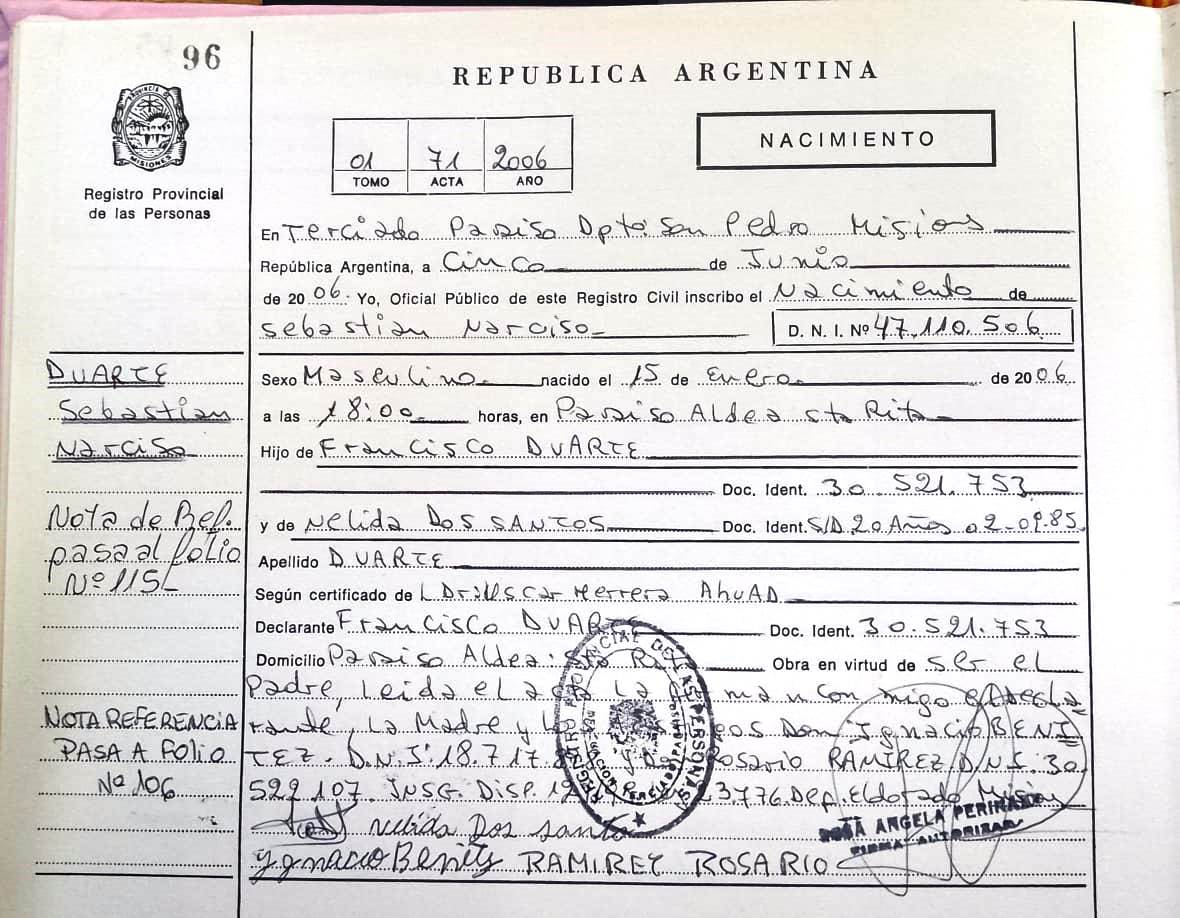 96
REPUBLICA ARGENTINA
PROVINCIA DE MISIONES
Registro Provincial
de las Personas
NACIMIENTO
01 71 2006
TOMO ACTA AÑO
En Terciado Paraiso Dpto: San Pedro Misiones
República Argentina, a Cinco de Junio
de 2006. Yo, Oficial Público de este Registro Civil inscribo el Nacimiento de
Sebastian Narciso D. N. I. Nº 47.110.506
DUARTE
Sebastian
Narciso
Sexo Masculino nacido el 15 de Enero de 2006
a las 18:00 horas, en Paraiso Aldea Sta Rita
Hijo de Francisco DUARTE
Doc. Ident. 30.521.753
y de Nelida DOS SANTOS Doc. Ident. S/D.20 Años 02-09-85
Apellido DUARTE
Según certificado de Herrera AhuAD
Declarante Francisco DUARTE Doc. Ident. 30.521.753
Domicilio Paraiso Aldea Sta Obra en virtud de ser el
Padre, leida el La man con migo el
rante, La Madre y Don Ignacio BENI
TEZ. D.N.I: 18.717. Rosario RAMIREZ D.N.I. 30
522107. Disp. 3776. Dep. Eldorado
Nelida Dos santo
Ygnacio Benitez RAMIREZ ROSARIO
Nota de Ref.
pasa al folio
Nº 115
NOTA REFERENCIA
PASA A FOLIO
Nº 106
REGISTRO PROVINCIAL DE LAS PERSONAS
ROSA ANGELA
FIRMA AUTORIZADA